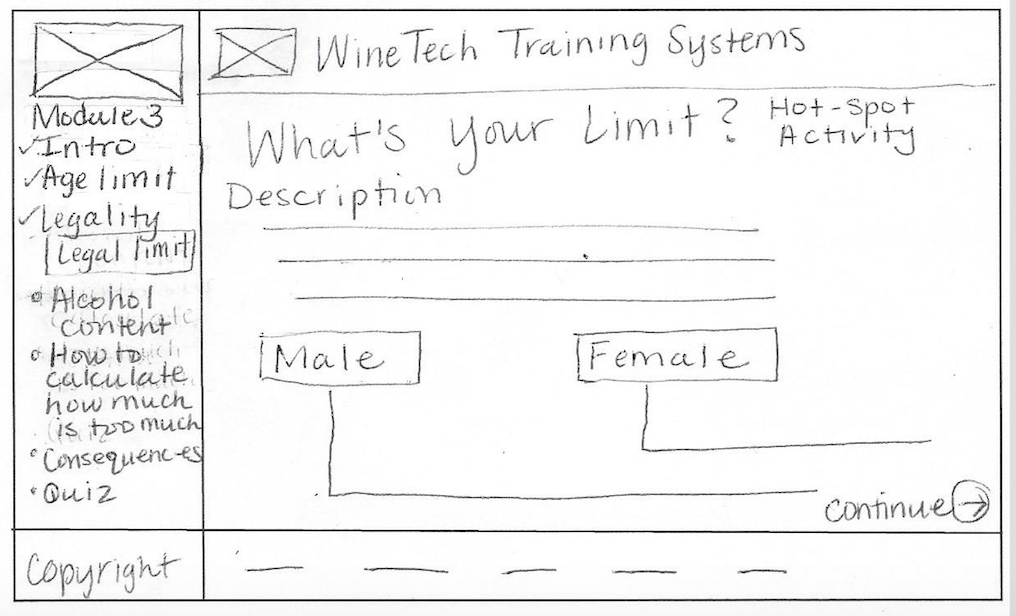 WineTech Training Systems
Module 3
✓Intro
✓Age limit
✓Legality
Legal limit
• Alcohol
content
• How to
calculate
how much
is too much
• Consequences
• Quiz
What's Your Limit?
Hot-Spot
Activity
Description
Male
Female
continue →
Copyright